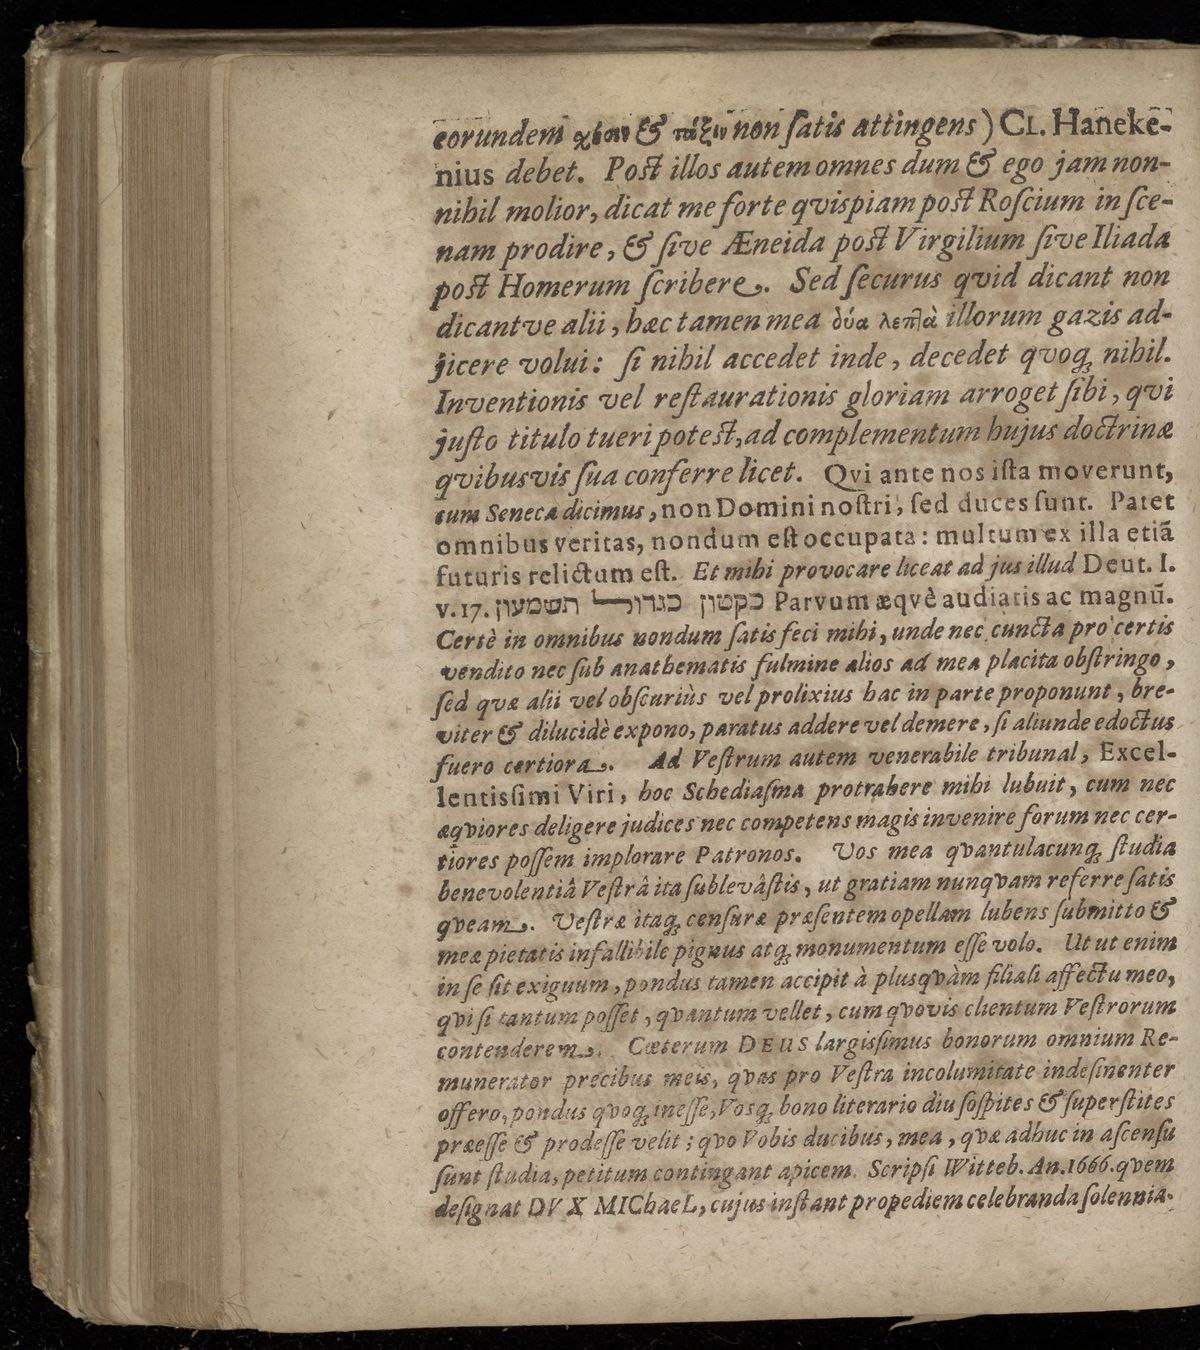 eorundem χέσιν & τάξιν non ſatis attingens) CL. Haneke-
nius debet. Poſt illos autem omnes dum & ego jam non-
nihil molior, dicat me forte qviſpiam poſt Roſcium in ſce-
nam prodire, & ſive Æneida poſt Virgilium ſive Iliada
poſt Homerum ſcribere. Sed ſecurus qvid dicant non
dicantve alii, hæc tamen mea δύα λεπτὰ illorum gazis ad-
jicere volui: ſi nihil accedet inde, decedet qvoq; nihil.
Inventionis vel reſtaurationis gloriam arroget ſibi, qvi
juſto titulo tueri poteſt, ad complementum hujus doctrinæ
qvibusvis ſua conferre licet. Qvi ante nos iſta moverunt,
cum Seneca dicimus, non Domini noſtri, ſed duces ſunt. Patet
omnibus veritas, nondum eſt occupata: multum ex illa etiã
futuris relictum eſt. Et mihi provocare liceat ad jus illud Deut. I.
v. 17. כקטון כגדול תשמעון Parvum æqvè audiatis ac magnũ.
Certè in omnibus nondum ſatis feci mihi, unde nec cuncta pro certis
vendito nec ſub anathematis fulmine alios ad mea placita obſtringo,
ſed qvæ alii vel obſcuriùs vel prolixius hac in parte proponunt, bre-
viter & dilucidè expono, paratus addere vel demere, ſi aliunde edoctus
fuero certiora. Ad Veſtrum autem venerabile tribunal, Excel-
lentisſimi Viri, hoc Schediaſma protrahere mihi lubuit, cum nec
æqviores deligere judices nec competens magis invenire forum nec cer-
tiores poſſem implorare Patronos. Vos mea qvantulacunq; ſtudia
benevolentiâ Veſtrâ ita ſublevâſtis, ut gratiam nunqvam referre ſatis
qveam. Veſtræ itaq; cenſuræ præſentem opellam lubens ſubmitto &
meæ pietatis infallibile pignus atq; monumentum eſſe volo. Ut ut enim
in ſe ſit exiguum, pondus tamen accipit à plusqvàm filiali affectu meo,
qvi ſi tantum poſſet, qvantum vellet, cum qvovis clientum Veſtrorum
contenderem. Cæterum DEUS largisſimus bonorum omnium Re-
munerator precibus meis, qvas pro Veſtra incolumitate indeſinenter
offero, pondus qvoq; ineſſe, Vosq; bono literario diu ſoſpites & ſuperſtites
præeſſe & prodeſſe velit; qvo Vobis ducibus, mea, qvæ adhuc in aſcenſu
ſunt ſtudia, petitum contingant apicem. Scripſi Witteb. An. 1666. qvem
deſignat DVX MIChaeL, cujus inſtant propediem celebranda ſolennia.